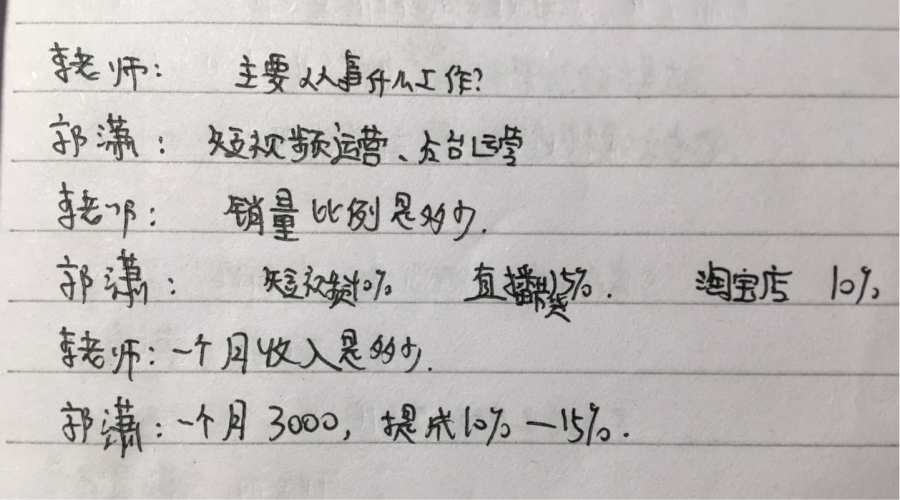 李老师： 主要从事什么工作？
郭潇： 短视频运营、后台运营
李老师： 销量比例是多少.
郭潇： 短视频10% 直播带货15%. 淘宝店 10%
李老师：一个月收入是多少.
郭潇：一个月3000，提成10%—15%.